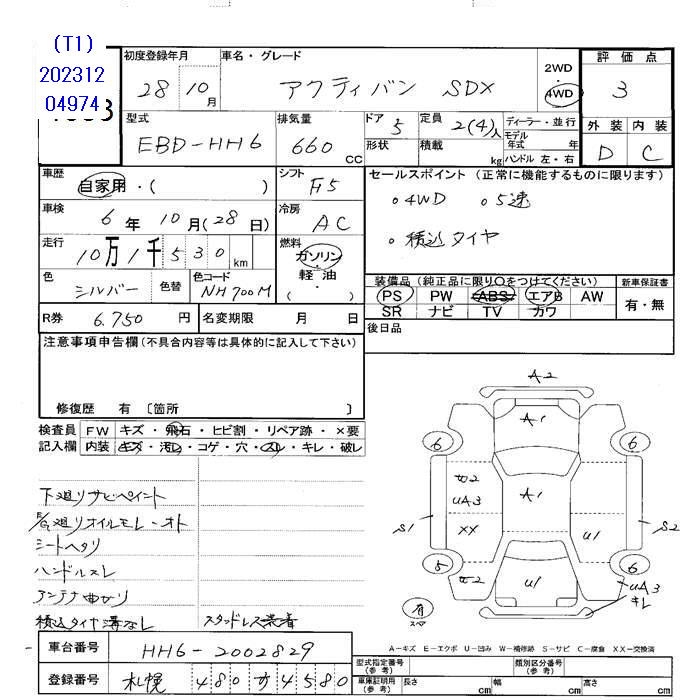 (T1)
202312
04974
初度登録年月
28 10 月
車名・グレード
アクティバン SDX
2WD
・
4WD
評価点
3
外装 内装
D C
型式
EBD-HH6
排気量
660 CC
ドア 5
形状
定員 2(4)人
積載 kg
ディーラー・並行
モデル年式 年
ハンドル 左・右
車歴
自家用・( )
シフト F5
車検
6 年 10 月(28 日)
冷房 AC
走行
10万1千530 km
燃料
ガソリン
・
軽油
( )
色
シルバー
色替
色コード
NH700M
R券 6.750 円
名変期限 月 日
セールスポイント (正常に機能するものに限ります)
・4WD ・5速
・積込タイヤ
装備品(純正品に限り〇をつけてください)
PS PW ABS エアB AW
SR ナビ TV カワ
新車保証書
有・無
後日品
注意事項申告欄(不具合内容等は具体的に記入して下さい)
修復歴 有〔箇所 〕
検査員 FW キズ・飛石・ヒビ割・リペア跡・×要
記入欄 内装 キズ・汚レ・コゲ・穴・スレ・キレ・破レ
下廻りサビペイント
オイルモレ・オト
シートヘタリ
ハンドルスレ
アンテナ曲がり
積込タイヤ溝なし
スタッドレス装着
A2
A1
6 6
W2
UA3
A1
XX
S1
U1
S2
5 6
W2
U1
UA3
キレ
有
スペア
A-キズ E-エクボ U-凹み W-補修跡 S-サビ C-腐食 XX-交換済
車台番号 HH6-2002829
登録番号 札幌 480 か 4580
型式指定番号(参考)
類別区分番号(参考)
車庫証明用(参考) 長さ cm 幅 cm 高さ cm